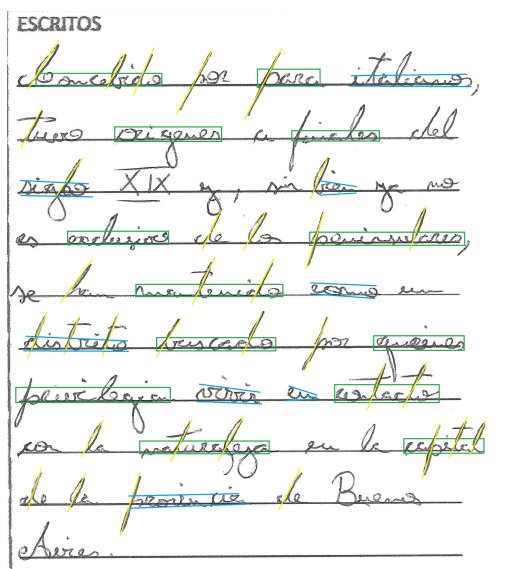 ESCRITOS
Concebido por para italianos,
Tuvo orígenes a finales del
siglo XIX y, sin bien ya no
es exclusivo de los peninsulares,
se han mantenido como un
distrito buscado por quienes
privilegian vivir en contacto
con la naturaleza en la capital
de la provincia de Buenos
Aires.